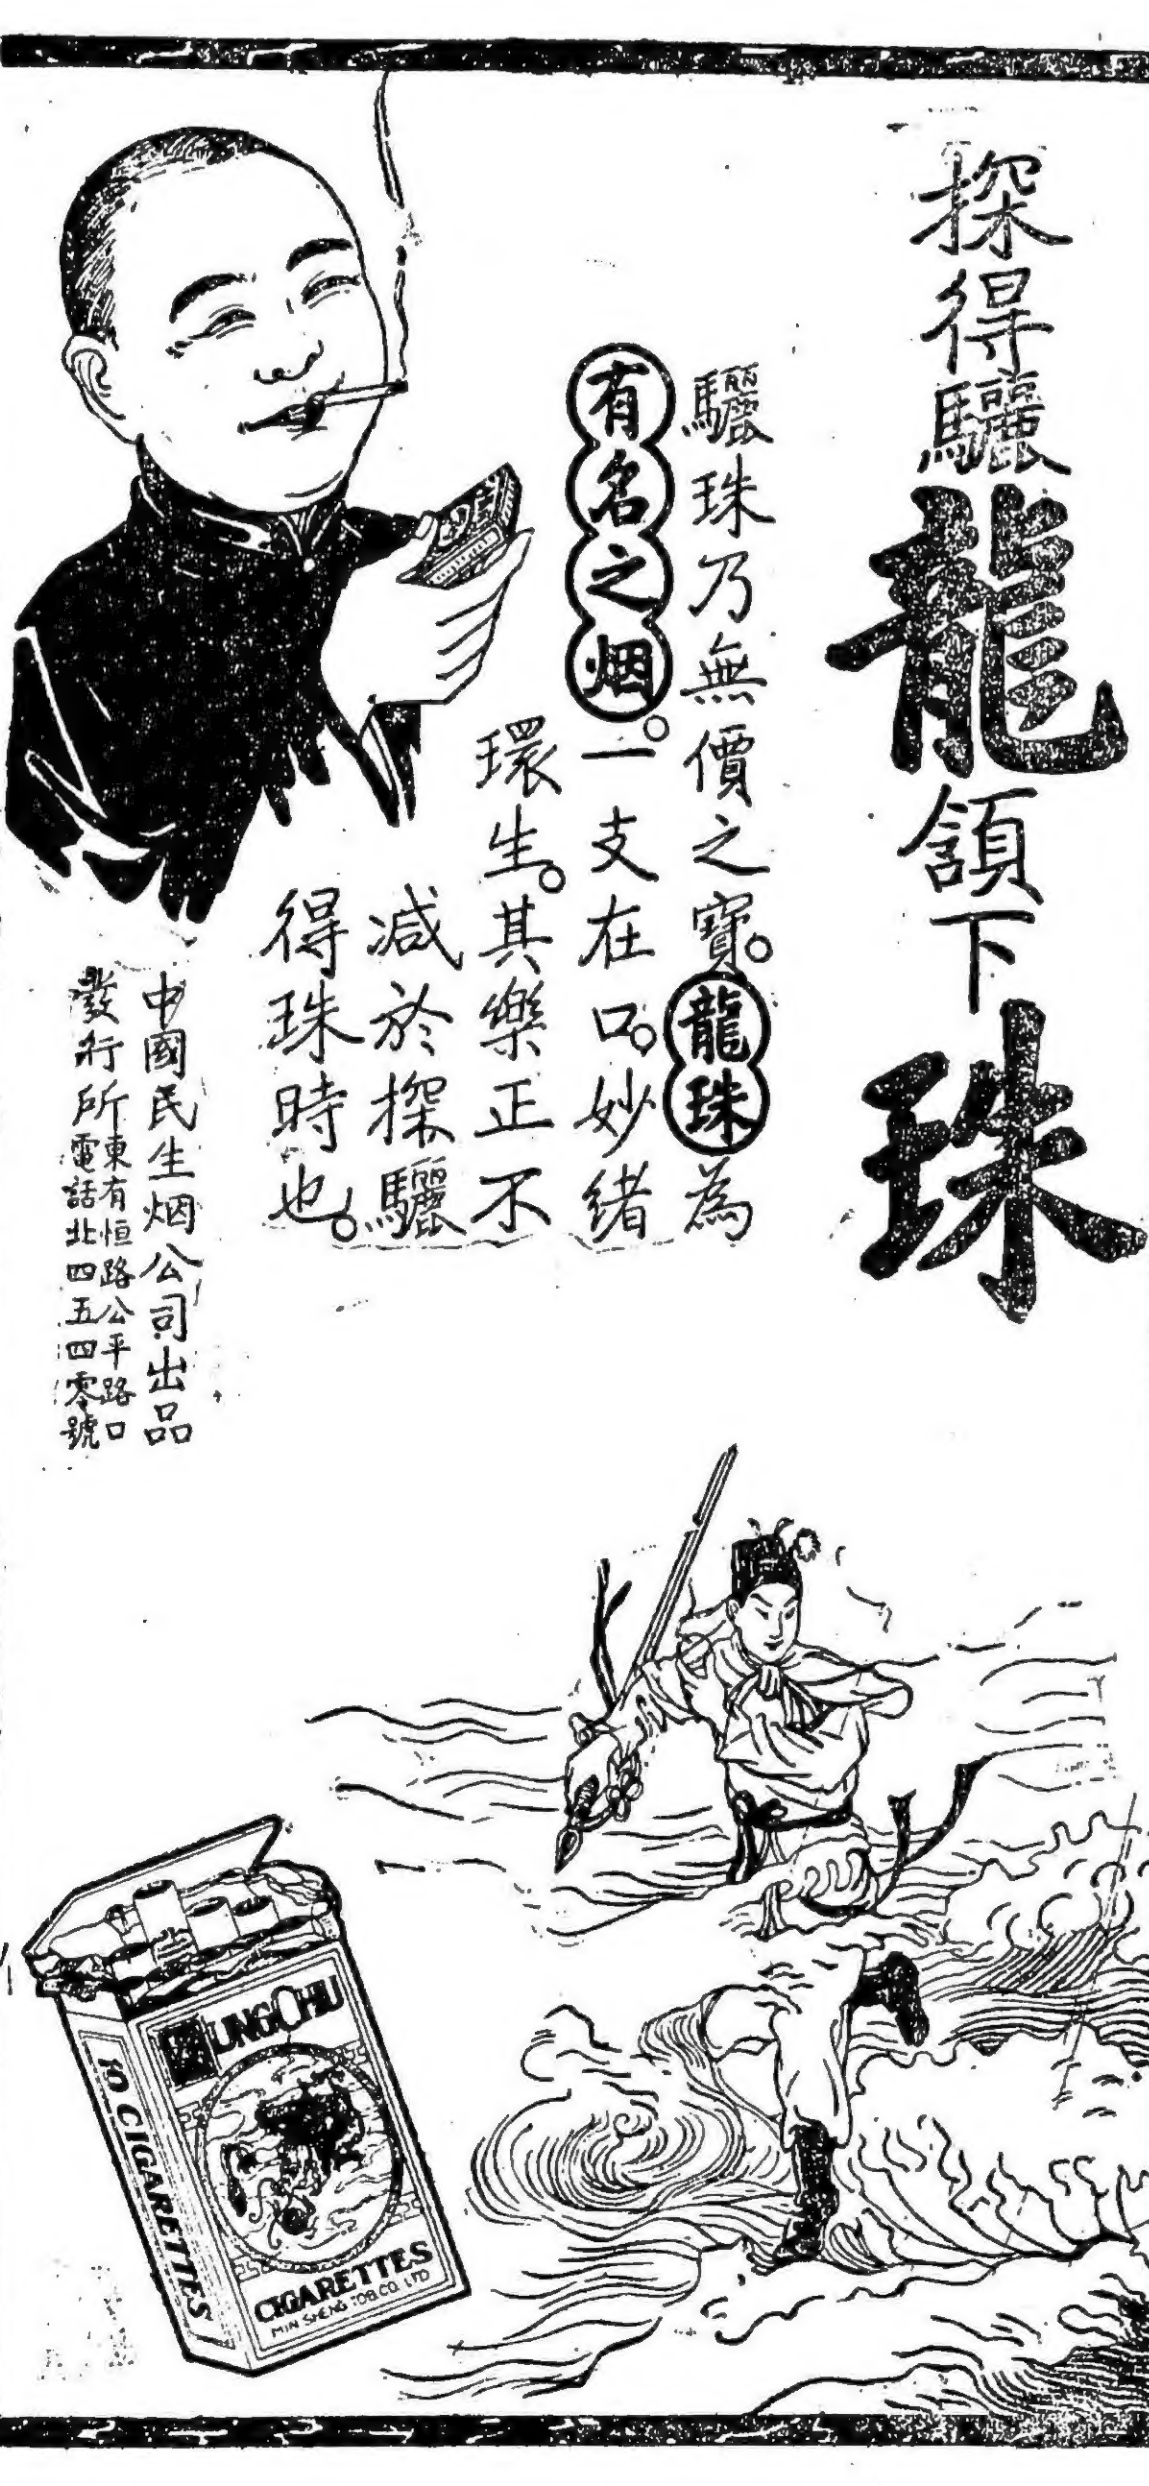 探得驪龍頷下珠
驪珠乃無價之寶。龍珠為
有名之烟。一支在口。妙緒
環生。其樂正不
减於探驪
得珠時也。
中國民生烟公司出品
發行所
東有恒路公平路口
電話北四五四零號
LUNGCHU
10 CIGARETTES
CIGARETTES
MIN SHENG TOB. CO. LTD